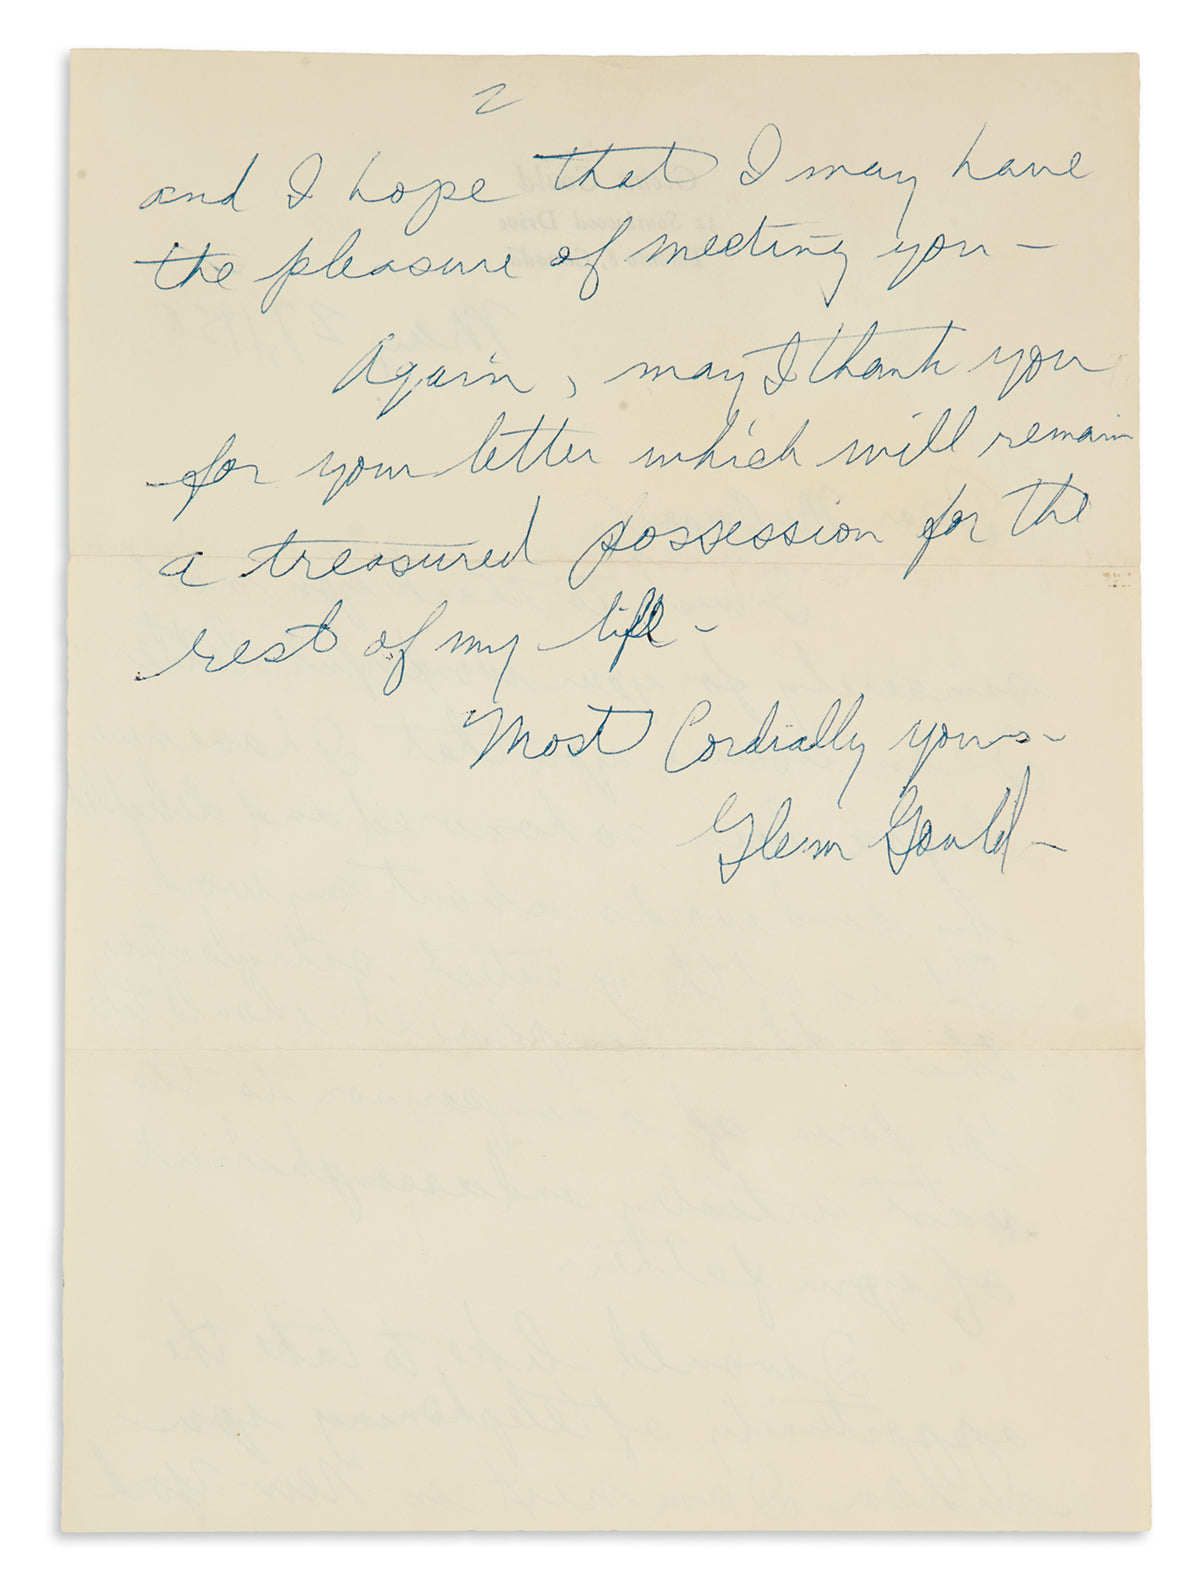 2
and I hope that I may have
the pleasure of meeting you –
Again, may I thank you
for your letter which will remain
a treasured possession for the
rest of my life –
Most Cordially yours –
Glenn Gould –